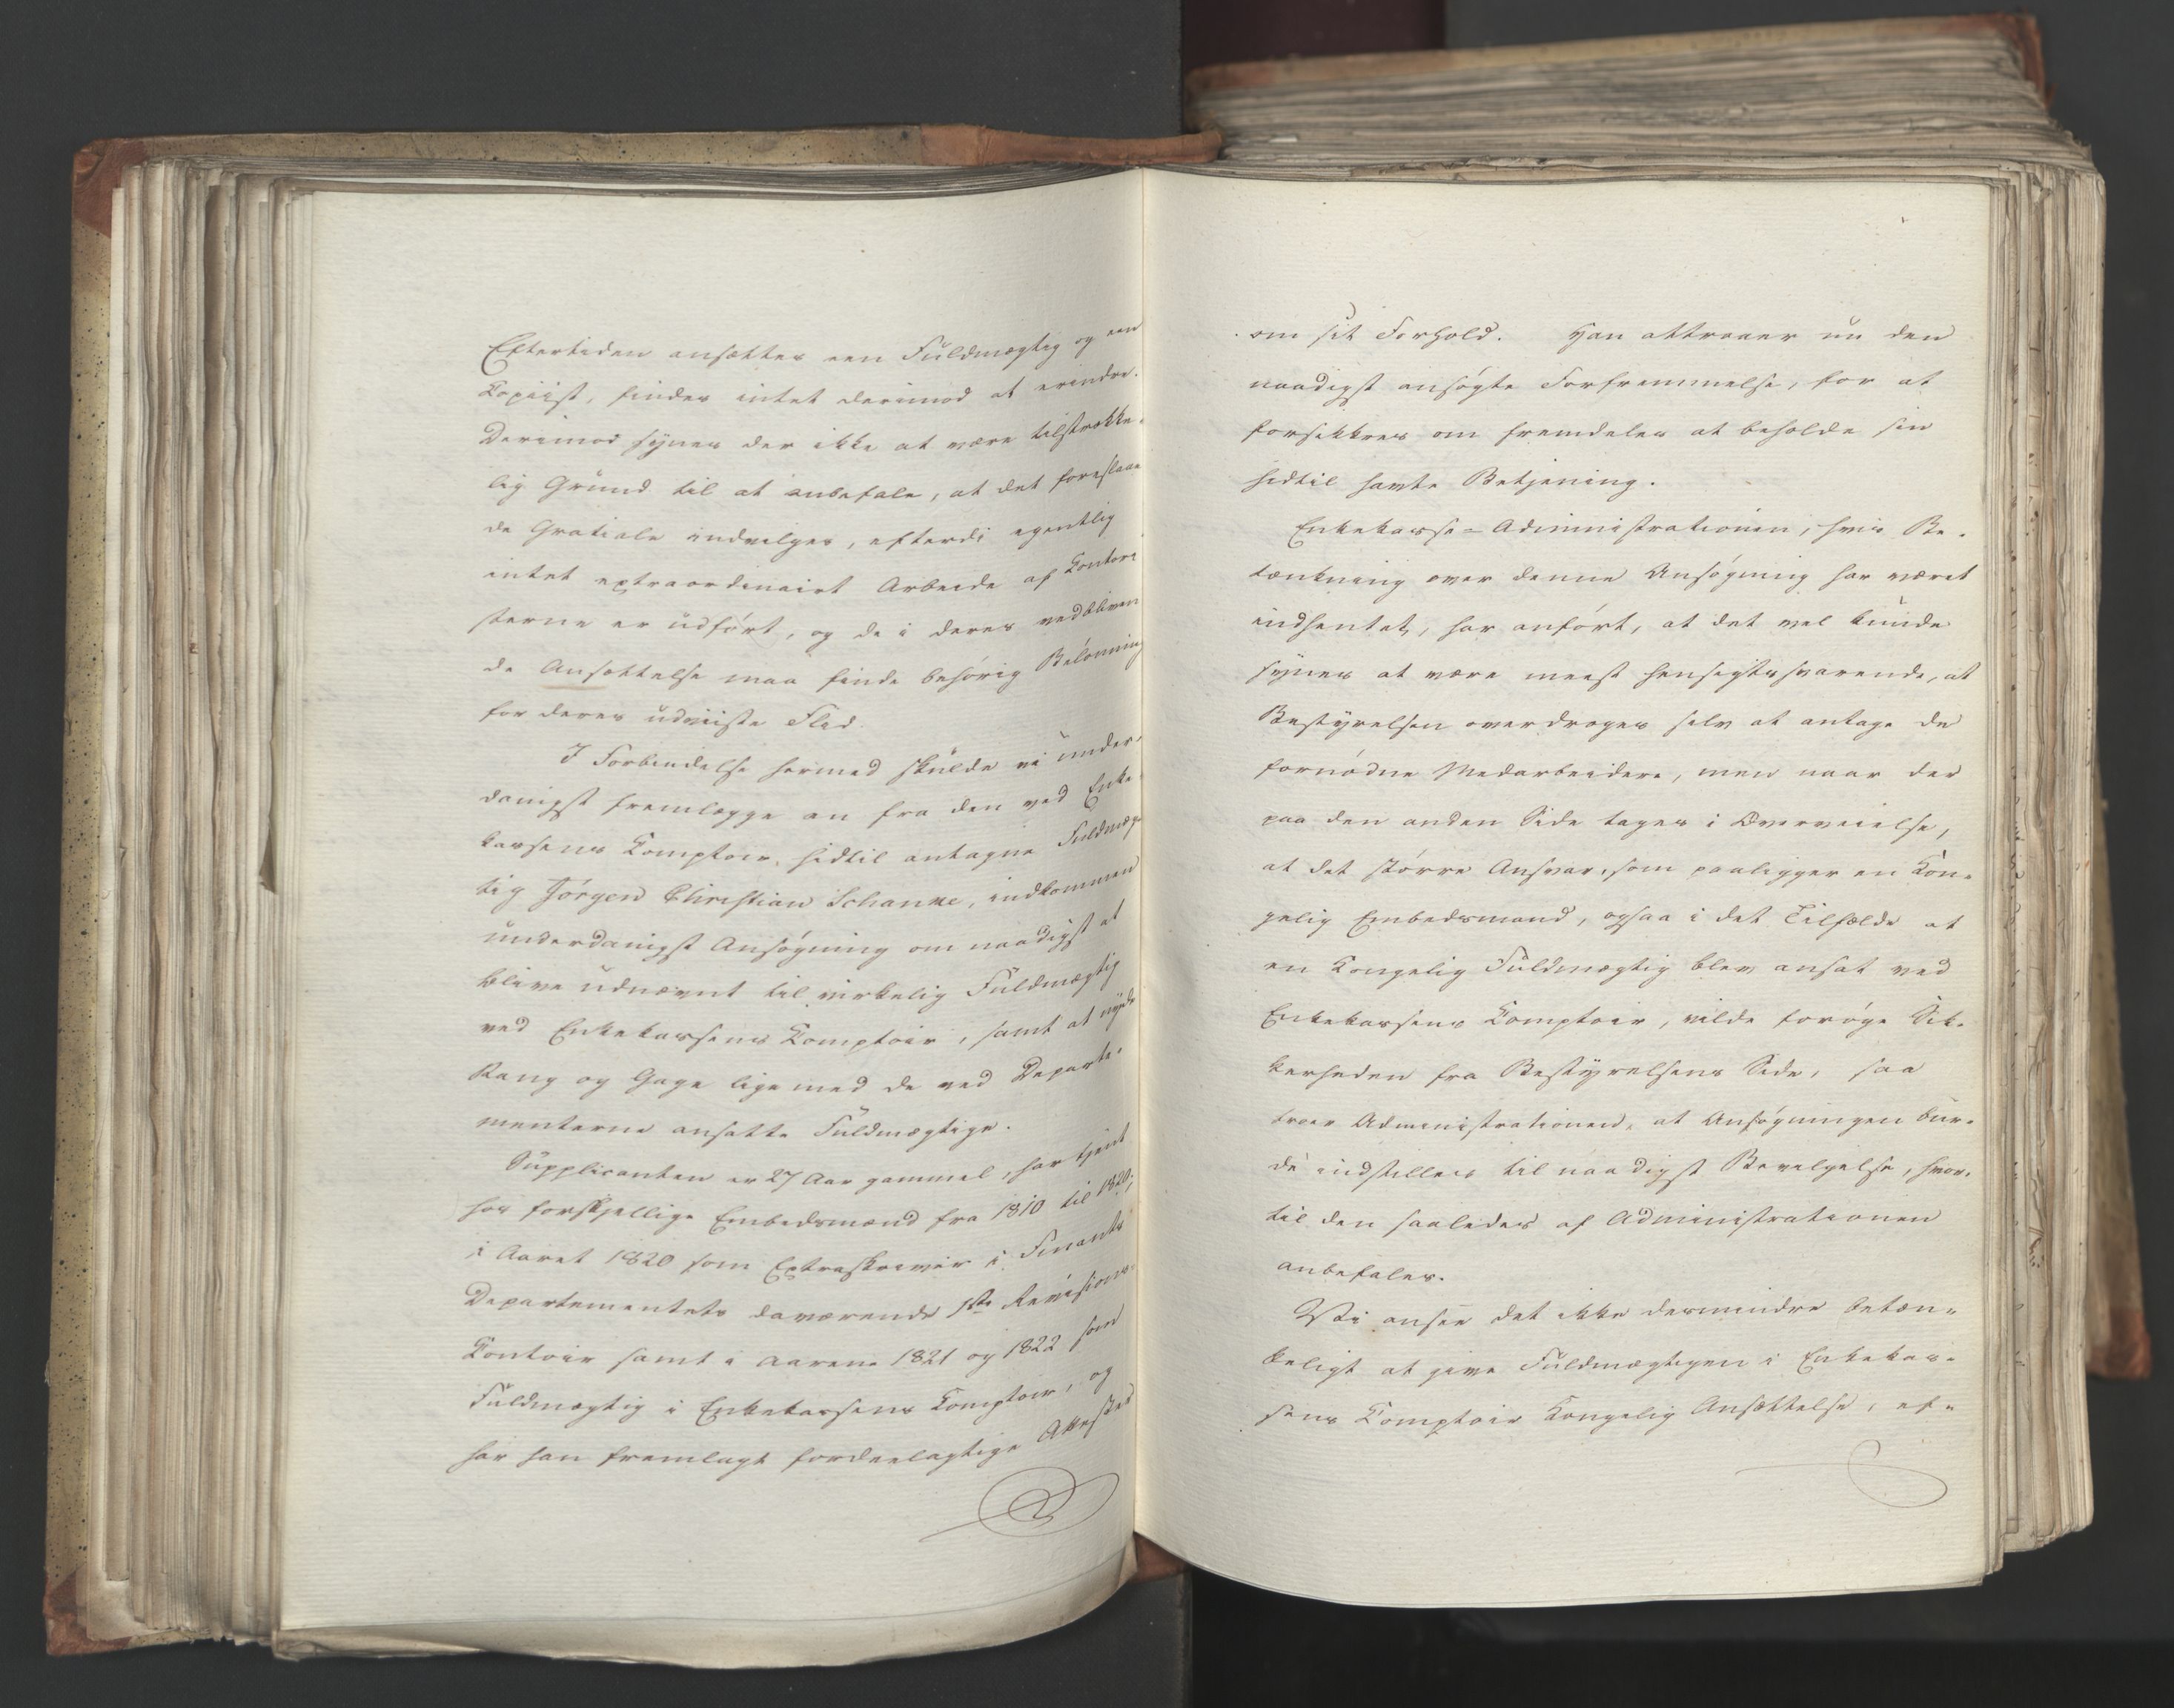 Eftertiden ansættes een Fuldmægtig og een
Copiist, findes intet derimod at erindre.
Derimod synes der ikke at være tilstrække-
lig Grund til at anbefale, at det foreslaae
de Gratiale indvilges, efterdi egentlig
intet extraordinairt Arbeide af Contori
sterne er udført, og de i deres vedbliven
de Ansættelse maa finde behørig Belønning
for deres udviiste Flid.
I Forbindelse hermed skulde vi under-
danigst fremlægge en fra den ved Enke
kassens Comptoir hidtil antagne Fuldmæg
tig Jørgen Christian Schanke, indkommen
underdanigst Ansøgning om naadigst at
blive udnævnt til virkelig Fuldmægtig
ved Enkekassens Comptoir, samt at nyde
Rang og Gage lige med de ved Departe-
menterne ansatte Fuldmægtige.
Supplicanten er 27 Aar gammel, har tjent
hos forskjellige Embedsmænd fra 1810 til 1820;
i Aaret 1820 som Extraskriver i Finants
Departementets daværende 1ste Revisions-
Contoir samt i Aarene 1821 og 1822 som
Fuldmægtig i Enkekassens Comptoir, og
har han fremlagt fordeelagtige Attester
om sit Forhold. Han attraaer nu den
naadigst ansøgte Forfremmelse, for at
forsikkres om fremdeles at beholde sin
hidtil havte Betjening.
Enkekasse-Administrationen, hvis Be-
tænkning over denne Ansøgning har været
indhentet, har anført, at det vel kunde
synes at være meest hensigtssvarende, at
Bestyrelsen overdroges selv at antage de
fornødne Medarbeidere, men naar der
paa den anden Side tages i Overveielse,
at det større Ansvar, som paaligger en Kon-
gelig Embedsmand, ogsaa i det Tilfælde at
en Kongelig Fuldmægtig blev ansat ved
Enkekassens Comptoir, vilde forøge Sik-
kerheden fra Bestyrelsens Side, saa
troer Administrationen, at Ansøgningen bur-
de indstilles til naadigst Bevilgelse, hvor-
til den saaledes af Administrationen
anbefales.
Vi ansee det ikke desmindre betæn-
keligt at give Fuldmægtigen i Enkekas-
sens Comptoir Kongelig Ansættelse, ef-